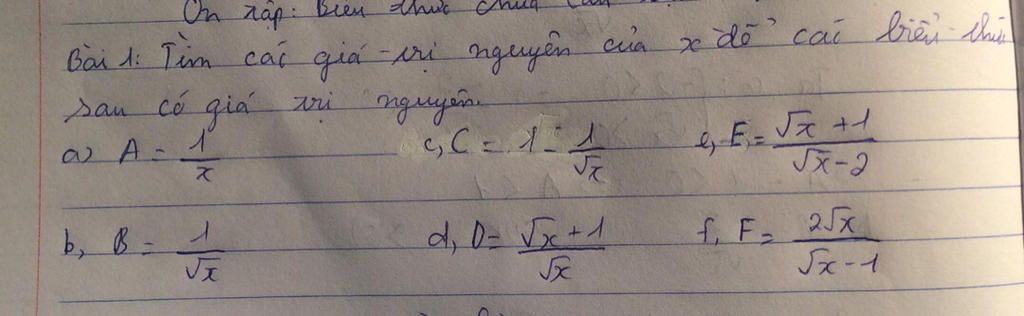 Ôn tập: Biểu thức chứa căn
Bài 1: Tìm các giá trị nguyên của x để các biểu thức
sau có giá trị nguyên.
a) A = 1/x c, C = 1 - 1/√x e, E = (√x + 1)/(√x - 2)
b, B = 1/√x d, D = (√x + 1)/√x f, F = 2√x/(√x - 1)